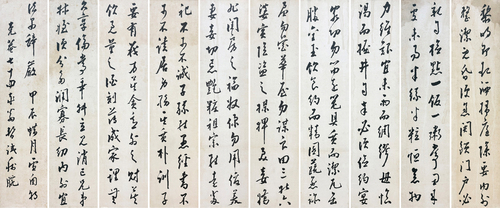 黎明即起洒掃庭除要內外
整潔既昏便息關鎖門戶必
親自檢點一飯一粥當思來
處不易半絲半縷恒念物
力維艱宜未雨而綢繆毋臨
渴而掘井自奉必須儉約宴
客切勿留連器具質而潔瓦缶
勝金玉飲食約而精園蔬愈珍
饈勿營華屋勿謀良田三姑六
婆實淫盜之媒婢美妾嬌
非閨房之福奴僕勿用俊美
妻妾切忌艷粧祖宗雖遠祭
祀不可不誠子孫雖愚經書不
可不讀居身務期質樸訓子
要有義方勿貪意外之財莫
飲過量之酒刻薄成家理無
久享倫常乖舛立見消亡兄弟
叔侄須分多潤寡長幼內外宜
法肅辭嚴 甲 臘月雪
七十四